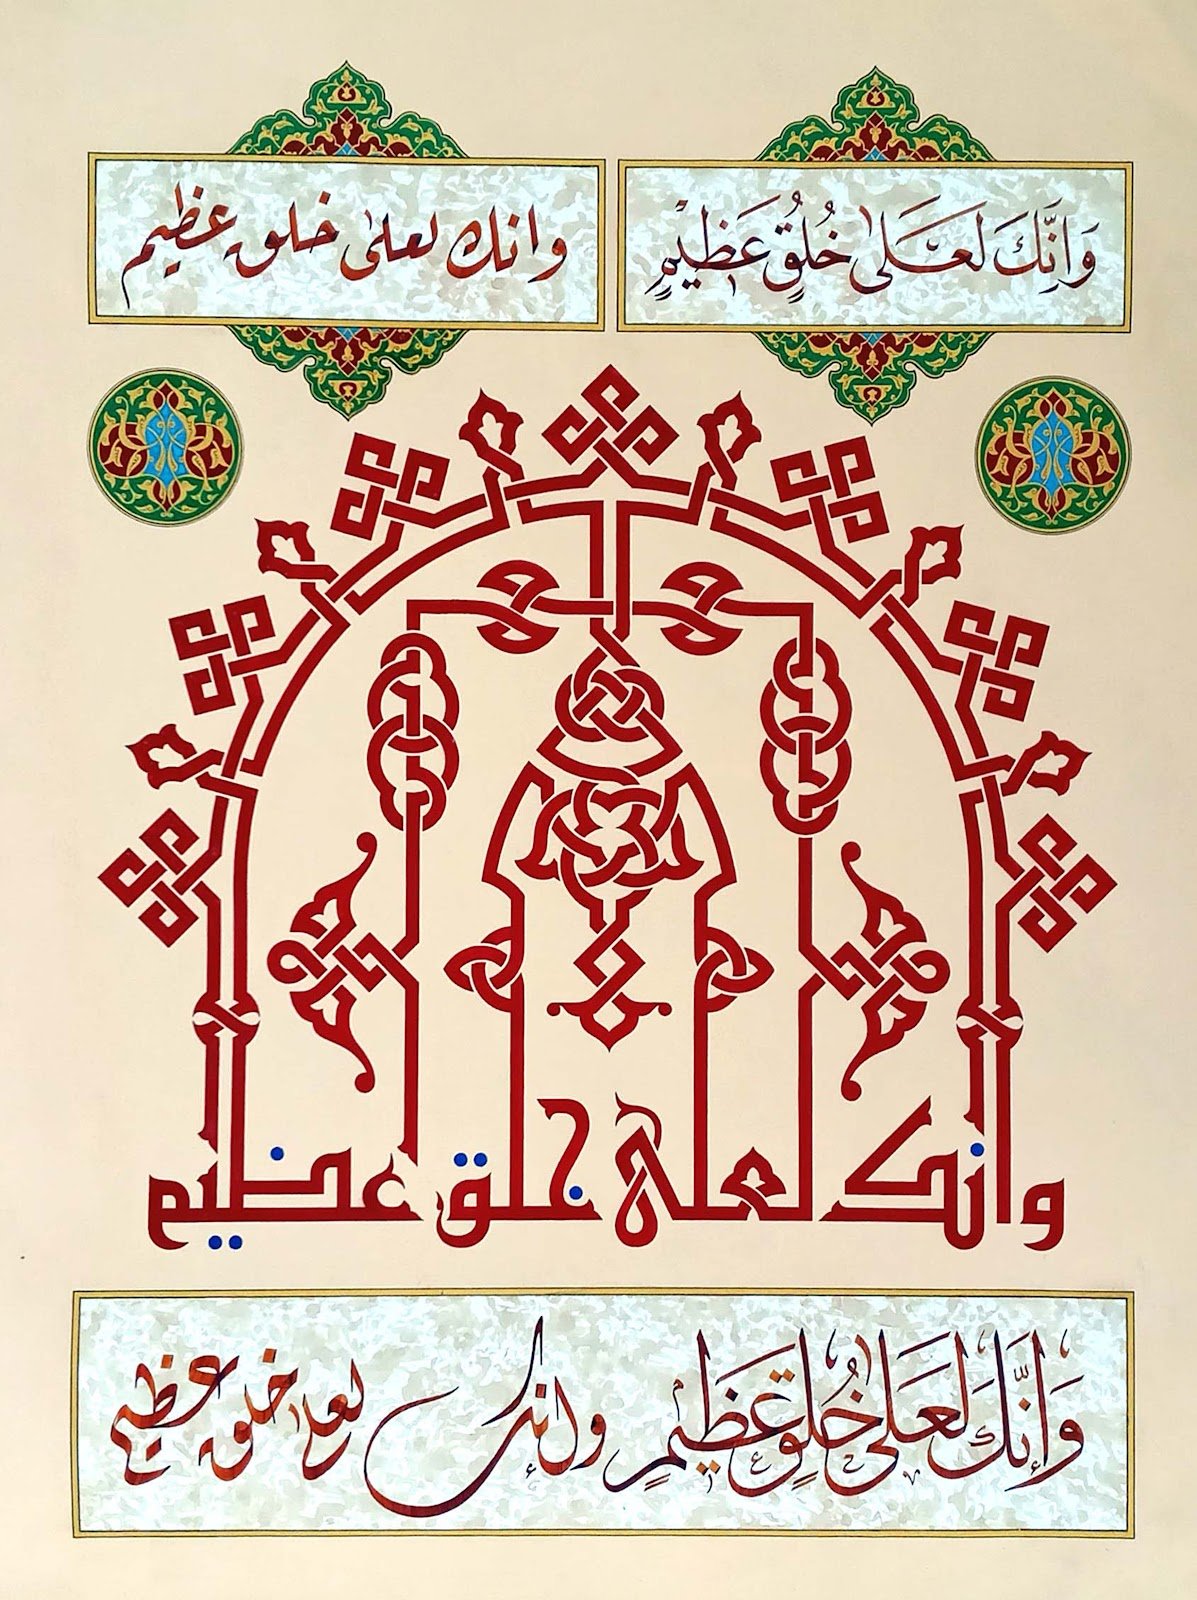 وَانَّكَ لَعَلىٰ خُلُقٍ عَظيْمٍ
وانك لعلى خلق عظيم
وانك لعلى خلق عظيم
وَإِنَّكَ لَعَلىٰ خُلُقٍ عَظيمٍ
وإنك لعلى خلق عظيم